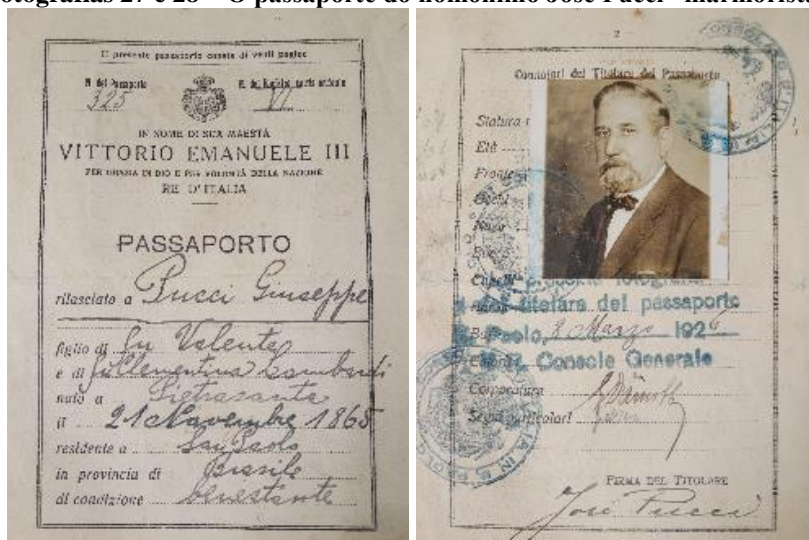 otografias 27 e 28 – O passaporte do homônimo José Pucci "marmorista
Il presente passaporto consta di venti pagine
N. del Passaporto
325
VI
IN NOME DI SUA MAESTÀ
VITTORIO EMANUELE III
PER GRAZIA DI DIO E PER VOLONTÀ DELLA NAZIONE
RE D'ITALIA
PASSAPORTO
rilasciato a Pucci Giuseppe
figlio di fu Valente
e di fu Clementina Lombardi
nato a Pietrasanta
il 21 Novembre 1865
residente a San Paolo
in provincia di Brasile
di condizione benestante
2
Connotati del Titolare del Passaporto
Statura
Età
Fronte
Occhi
Naso
titolare del passaporto
Paolo, 8 Marzo 1926
Console Generale
Corporatura
Segni particolari
FIRMA DEL TITOLARE
José Pucci